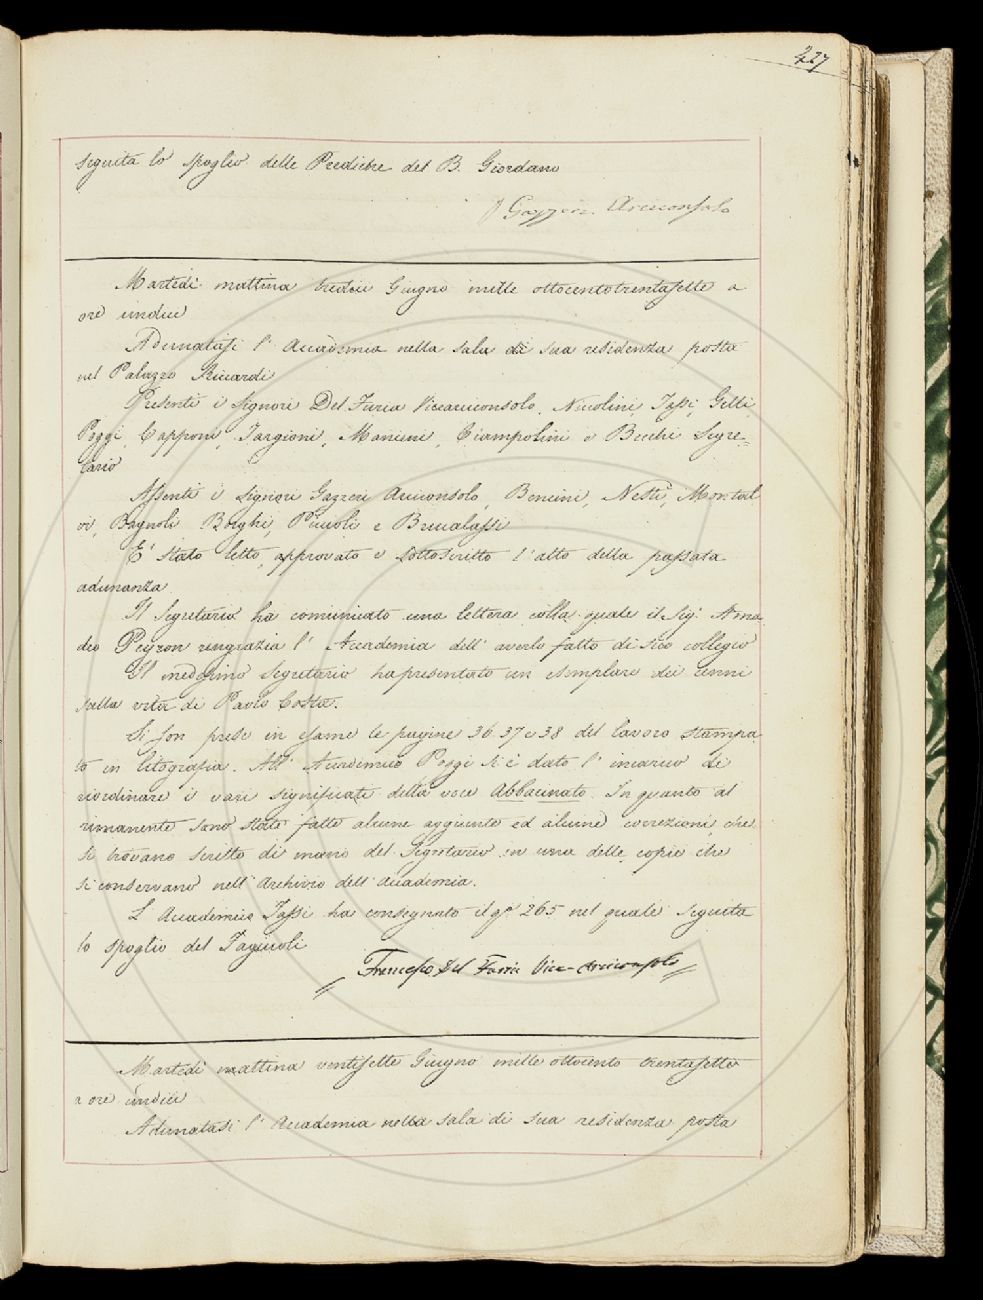 227
seguita lo spoglio delle Prediche del B. Giordano
Gazzeri Arciconsolo
Martedi mattina tredici Giugno mille ottocentotrentasette a
ore undici
Adunatasi l' Accademia nella sala di sua residenza posta
nel Palazzo Riccardi
Presenti i Signori Del Furia Viceaciconsolo, Niccolini, Tassi, Gelli
Poggi, Capponi, Targioni, Mancini, Ciampolini e Becchi Segre=
tario
Assenti i Signori Gazzeri Arciconsolo, Bencini, Nesti, Montal
vi, Bagnoli Borghi, Piccioli e Brucalassi
E' stato letto, approvato e sottoscritto l' atto della passata
adunanza
Il Segretario ha comunicato una lettera colla quale il Sig.r Ama
deo Peyron ringrazia l' Accademia dell' averlo fatto di suo collegio
Il medesimo Segretario ha presentato un esemplare dei cenni
sulla vita di Paolo Costa.
Si son prese in esame le pagine 36. 37 e 38 del lavoro stampa
to in litografia. All' Accademico Poggi si è dato l' incarico di
riordinare i vari significati della voce Abbacinato. In quanto al
rimanente sono state fatte alcune aggiunte ed alcune correzioni, che
si trovano scritte di mano del Segretario in una delle copie che
si conservano nell' Archivio dell' Accademia.
L' Accademico Tassi ha consegnato il q.º 265 nel quale seguita
lo spoglio del Fagiuoli
Francesco Del Furia Vice-Arciconsolo
Martedi mattina ventisette Giugno mille ottocento trentasette
a ore undici
Adunatasi l' Accademia nella sala di sua residenza posta